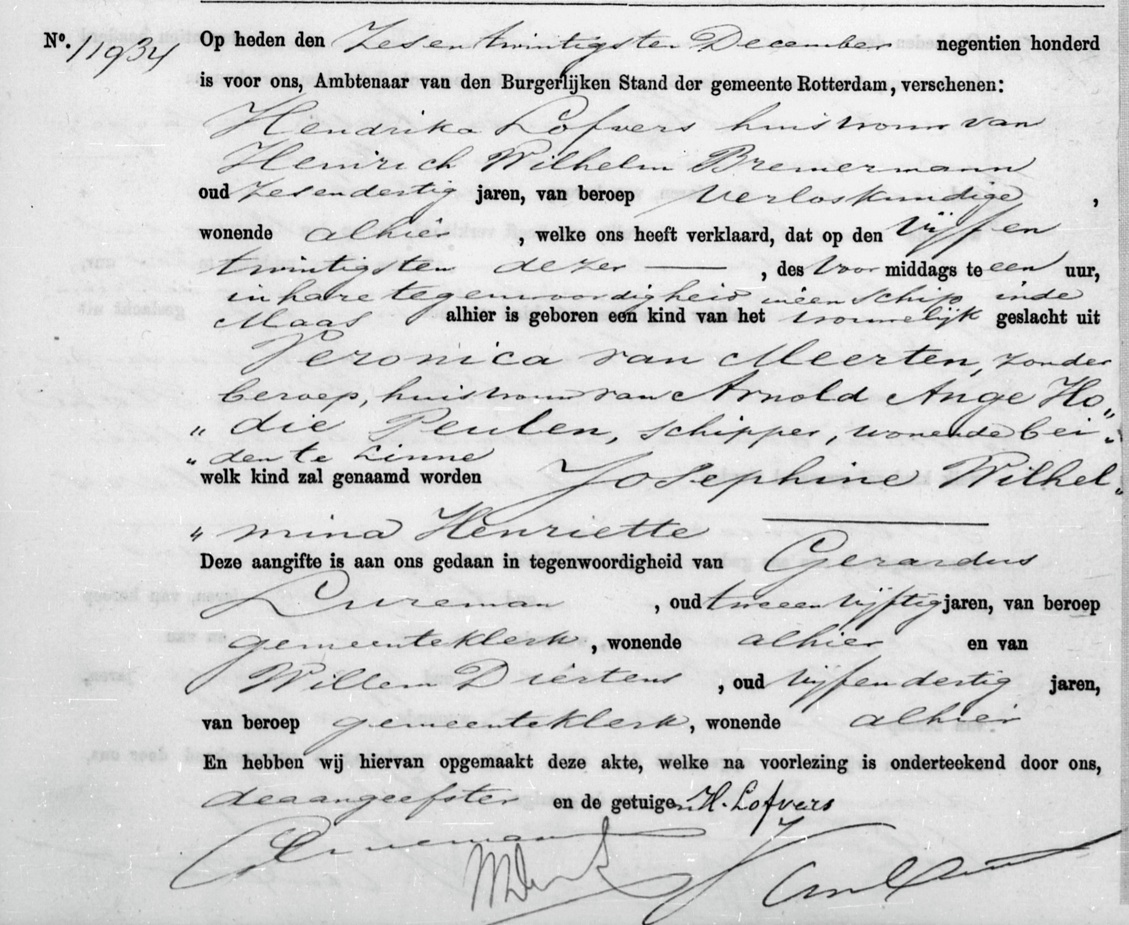 No. 11934 Op heden den Zesentwintigsten December negentien honderd
is voor ons, Ambtenaar van den Burgerlijken Stand der gemeente Rotterdam, verschenen:
Hendrika Lofvers huisvrouw van
Heinrich Wilhelm Bremermann
oud zesendertig jaren, van beroep Verloskundige,
wonende alhier, welke ons heeft verklaard, dat op den vijfen
twintigsten dezer —, des voor middags te een uur,
in hare tegenwoordigheid in een schip in de
Maas alhier is geboren een kind van het vrouwelijk geslacht uit
Veronica van Meerten, zonder
beroep, huisvrouw van Arnold Ange Ho„
„ die Peulen, schipper, wonende bei„
„ den te Linne
welk kind zal genaamd worden Josephine Wilhel„
„ mina Henriette —
Deze aangifte is aan ons gedaan in tegenwoordigheid van Gerardus
, oud tweeenvijftig jaren, van beroep
gemeenteklerk, wonende alhier en van
Willem Diertens, oud vijfendertig jaren,
van beroep gemeenteklerk, wonende alhier
En hebben wij hiervan opgemaakt deze akte, welke na voorlezing is onderteekend door ons,
de aangeefster en de getuigen. H. Lofvers